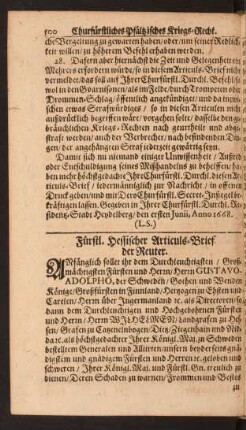 500 Churfürstliches Pfältzisches Kriegs-Recht.
che Vergeltung zu gewarten haben/ oder um seiner Redlich-
keit willen/ zu höherem Befehl erhaben werden.
28. Dafern aber hiernächst die Zeit und Gelegenheit ein
Mehrers erfordern würde/ so in diesem Articuls-Brief nicht
vermeldet/ das soll auf Ihrer Churfürstl. Durchl. Befehl so-
wol in den Guarnisonen/ als im Felde/ durch Trompeten oder
Trommen-Schlag/ öffentlich angekündiget/ und da inzwi-
schen etwas Strafwürdiges/ so in diesen Articulen nicht
ausdrücklich begriffen wäre/ vorgienge/ das solle anders ge-
bräuchlichen Kriegs-Rechten nach geurtheilt und abge-
strafft werden/ auch der Verbrecher/ nach befindenden Din-
gen/ der angehängten Straf jederzeit gewärtig seyn.
Damit sich nu niemand einiger Unwissenheit/ Ausrede
oder Entschuldigung seines Mißhandelns zu behelffen/ ha-
ben mehr höchstgedachte Ihre Churfürstl. Durchl. diesen Ar-
ticuls-Brief/ jedermänniglich zur Nachricht/ in offenen
Druck geben/ und mit Dero Churfürstl. Secret-Insigel be-
kräftigen lassen. Gegeben in Ihrer Churfürstl. Durchl. Re-
sidentz-Stadt Heydelberg/ den ersten Junii, Anno 1668.
(L.S.)
Fürstl. Hessischer Articuls-Brief
der Reuter.
Anfänglich sollet ihr dem Durchleuchtigsten/ Groß-
mächtigsten Fürsten und Herrn/ Herrn GUSTAVO-
ADOLPHO, der Schweden/ Gothen und Wenden
Könige/ Großfürsten in Finnland/ Hertzogen zu Ehsten und
Carelen/ Herrn über Ingermanland ec. als Directorn/ so-
dann dem Durchleuchtigen und Hochgebohrnen Fürsten
und Herrn/ Herrn WILHELMEN/ Landgrafen zu Hes-
sen/ Grafen zu Catzenelnbogen/ Dietz/ Ziegenhain und Nid-
da ec. als höchstgedachter Ihrer Königl. Maj. zu Schweden
bestelltem Generaln und Alliirten/ unsern beyderseits gnä-
digstem und gnädigem Fürsten und Herren ec. geloben und
schweren/ Ihrer Königl. Maj. und Fürstl. Gn. treulich zu
dienen/ Deren Schaden zu warnen/ Frommen und Bestes
zu